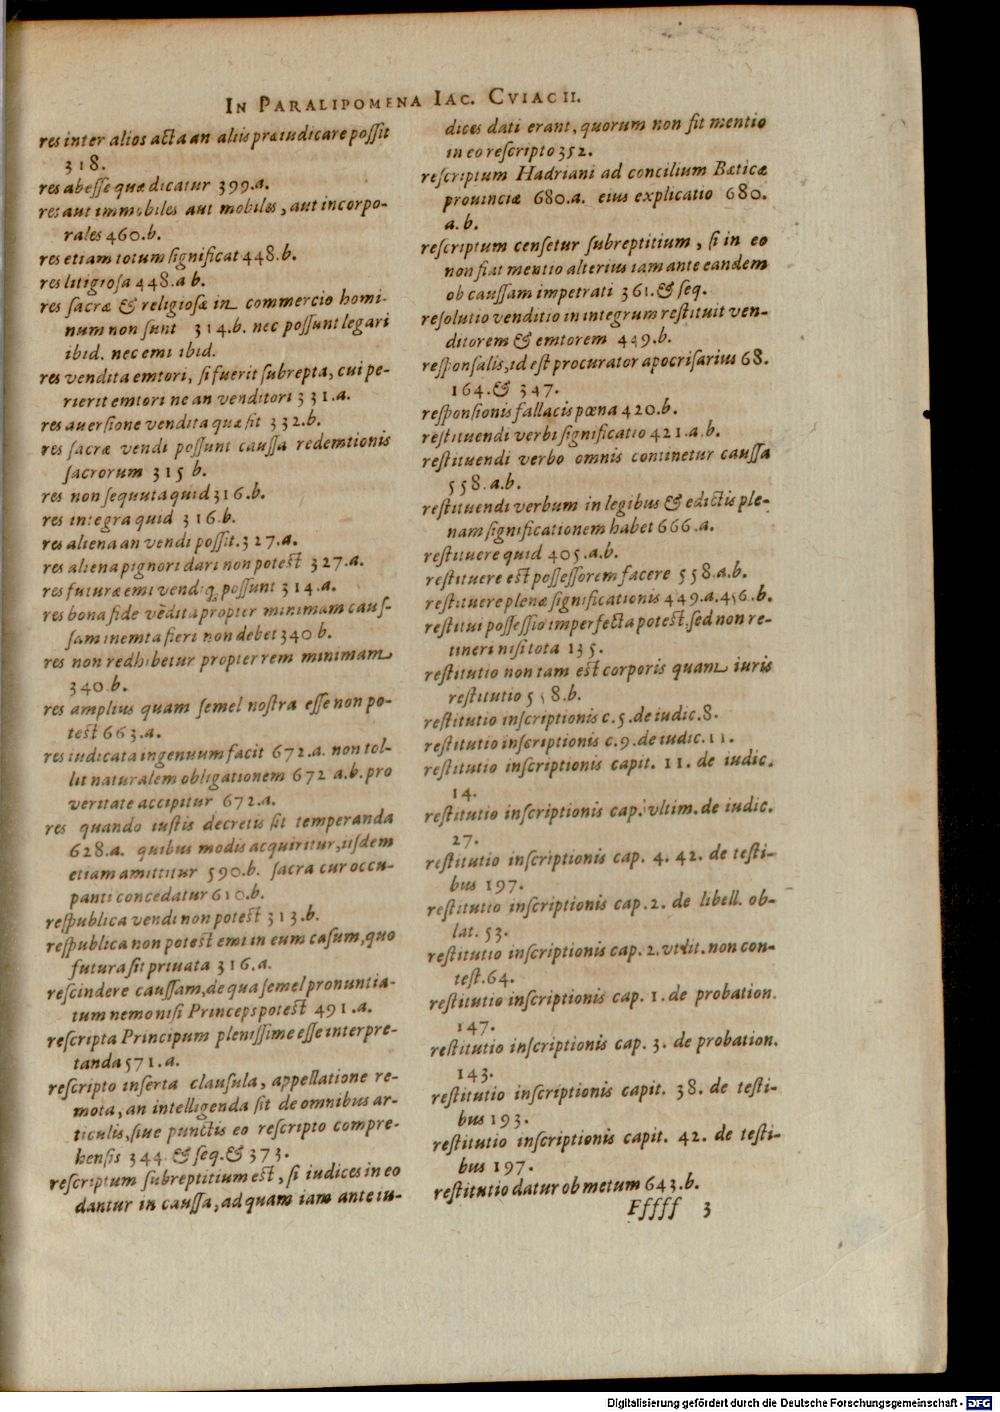 IN PARALIPOMENA IAC. CVIACII.
res inter alios acta an aliis præiudicare possit
318.
res abesse quæ dicatur 399.a.
res aut immobiles aut mobiles, aut incorpo-
rales 460.b.
res etiam totum significat 448.b.
res litigiosa 448.a b.
res sacræ & religiosæ in commercio homi-
num non sunt 314.b. nec possunt legari
ibid. nec emi ibid.
res vendita emtori, si fuerit subrepta, cui pe-
rierit emtori ne an venditori 331.a.
res auersione vendita quæ sit 332.b.
res sacræ vendi possunt caussa redemtionis
sacrorum 315 b.
res non sequuta quid 316.b.
res integra quid 316.b.
res aliena an vendi possit. 327.a.
res aliena pignori dari non potest 327.a.
res futuræ emi vendiq; possunt 314.a.
res bona fide vēdita propter minimam caus-
sam inemta fieri non debet 340 b.
res non redhibetur propter rem minimam
340.b.
res amplius quam semel nostra esse non po-
test 663.a.
res iudicata ingenuum facit 672.a. non tol-
lit naturalem obligationem 672 a.b. pro
veritate accipitur 672.a.
res quando iustis decretis sit temperanda
628.a. quibus modis acquiritur, iisdem
etiam amittitur 590.b. sacra cur occu-
panti concedatur 610.b.
respublica vendi non potest 313.b.
respublica non potest emi in eum casum, quo
futura sit priuata 316.a.
rescindere caussam, de qua semel pronuntia-
tum nemo nisi Princeps potest 491.a.
rescripta Principum plenissime esse interpre-
tanda 571.a.
rescripto inserta clausula, appellatione re-
mota, an intelligenda sit de omnibus ar-
ticulis, siue punctis eo rescripto compre-
hensis 344. & seq. & 373.
rescriptum subreptitium est, si iudices in eo
dantur in caussa, ad quam iam ante iu-
dices dati erant, quorum non fit mentio
in eo rescripto 352.
rescriptum Hadriani ad concilium Bæticæ
prouinciæ 680.a. eius explicatio 680.
a.b.
rescriptum censetur subreptitium, si in eo
non fiat mentio alterius iam ante eandem
ob caussam impetrati 361. & seq.
resolutio venditio in integrum restituit ven-
ditorem & emtorem 449.b.
responsalis, id est procurator apocrisarius 68.
164. & 347.
responsionis fallacis pœna 420.b.
restituendi verbi significatio 421.a.b.
restituendi verbo omnis continetur caussa
558.a.b.
restituendi verbum in legibus & edictis ple-
nam significationem habet 666.a.
restituere quid 405.a.b.
restituere est possessorem facere 558.a.b.
restituere plenæ significationis 449.a.456.b.
restitui possessio imperfecta potest, sed non re-
tineri nisi tota 135.
restitutio non tam est corporis quam iuris
restitutio 558.b.
restitutio inscriptionis c.5. de iudic. 8.
restitutio inscriptionis c.9. de iudic. 11.
restitutio inscriptionis capit. 11. de iudic.
14.
restitutio inscriptionis cap. vltim. de iudic.
27.
restitutio inscriptionis cap. 4. 42. de testi-
bus 197.
restitutio inscriptionis cap. 2. de libell. ob-
lat. 53.
restitutio inscriptionis cap. 2. vt lit. non con-
test. 64.
restitutio inscriptionis cap. 1. de probation.
147.
restitutio inscriptionis cap. 3. de probation.
143.
restitutio inscriptionis capit. 38. de testi-
bus 193.
restitutio inscriptionis capit. 42. de testi-
bus 197.
restitutio datur ob metum 643.b.
Fffff 3
Digitalisierung gefördert durch die Deutsche Forschungsgemeinschaft - DFG